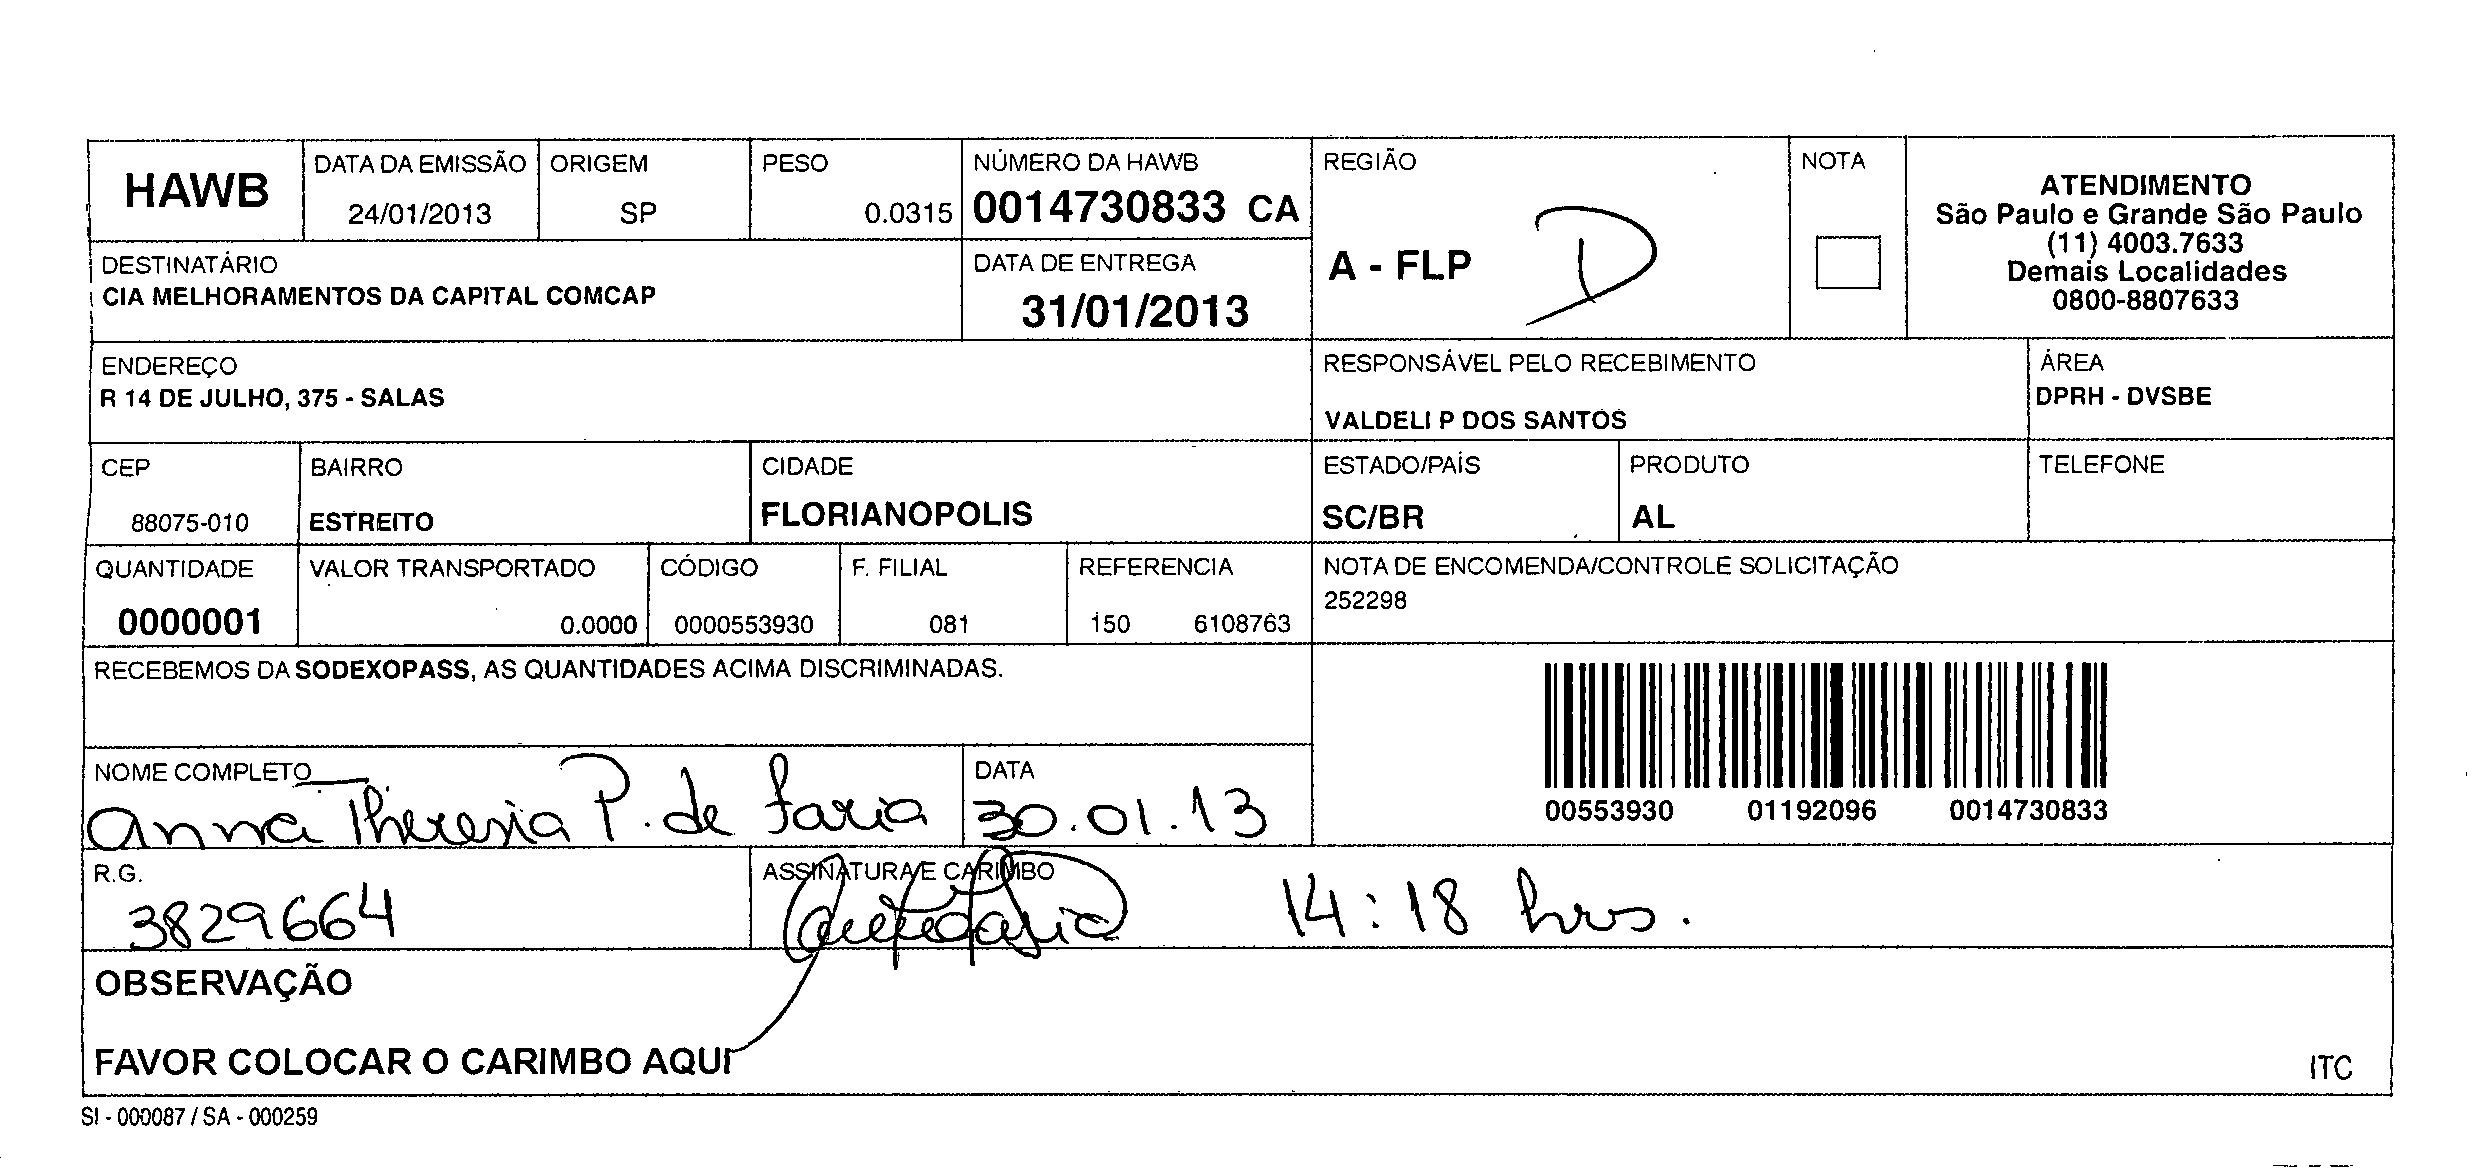 HAWB
DATA DA EMISSÃO
24/01/2013
ORIGEM
SP
PESO
0.0315
NÚMERO DA HAWB
0014730833 CA
REGIÃO
A - FLP
D
NOTA
ATENDIMENTO
São Paulo e Grande São Paulo
(11) 4003.7633
Demais Localidades
0800-8807633
DESTINATÁRIO
CIA MELHORAMENTOS DA CAPITAL COMCAP
DATA DE ENTREGA
31/01/2013
ENDEREÇO
R 14 DE JULHO, 375 - SALAS
RESPONSÁVEL PELO RECEBIMENTO
VALDELI P DOS SANTOS
ÁREA
DPRH - DVSBE
CEP
88075-010
BAIRRO
ESTREITO
CIDADE
FLORIANOPOLIS
ESTADO/PAÍS
SC/BR
PRODUTO
AL
TELEFONE
QUANTIDADE
0000001
VALOR TRANSPORTADO
0.0000
CÓDIGO
0000553930
F. FILIAL
081
REFERENCIA
150 6108763
NOTA DE ENCOMENDA/CONTROLE SOLICITAÇÃO
252298
RECEBEMOS DA SODEXOPASS, AS QUANTIDADES ACIMA DISCRIMINADAS.
00553930 01192096 0014730833
NOME COMPLETO
Anna Theresia P. de Faria
DATA
30.01.13
R.G.
3829664
ASSINATURA E CARIMBO
14:18 hrs.
OBSERVAÇÃO
FAVOR COLOCAR O CARIMBO AQUI
ITC
SI - 000087 / SA - 000259